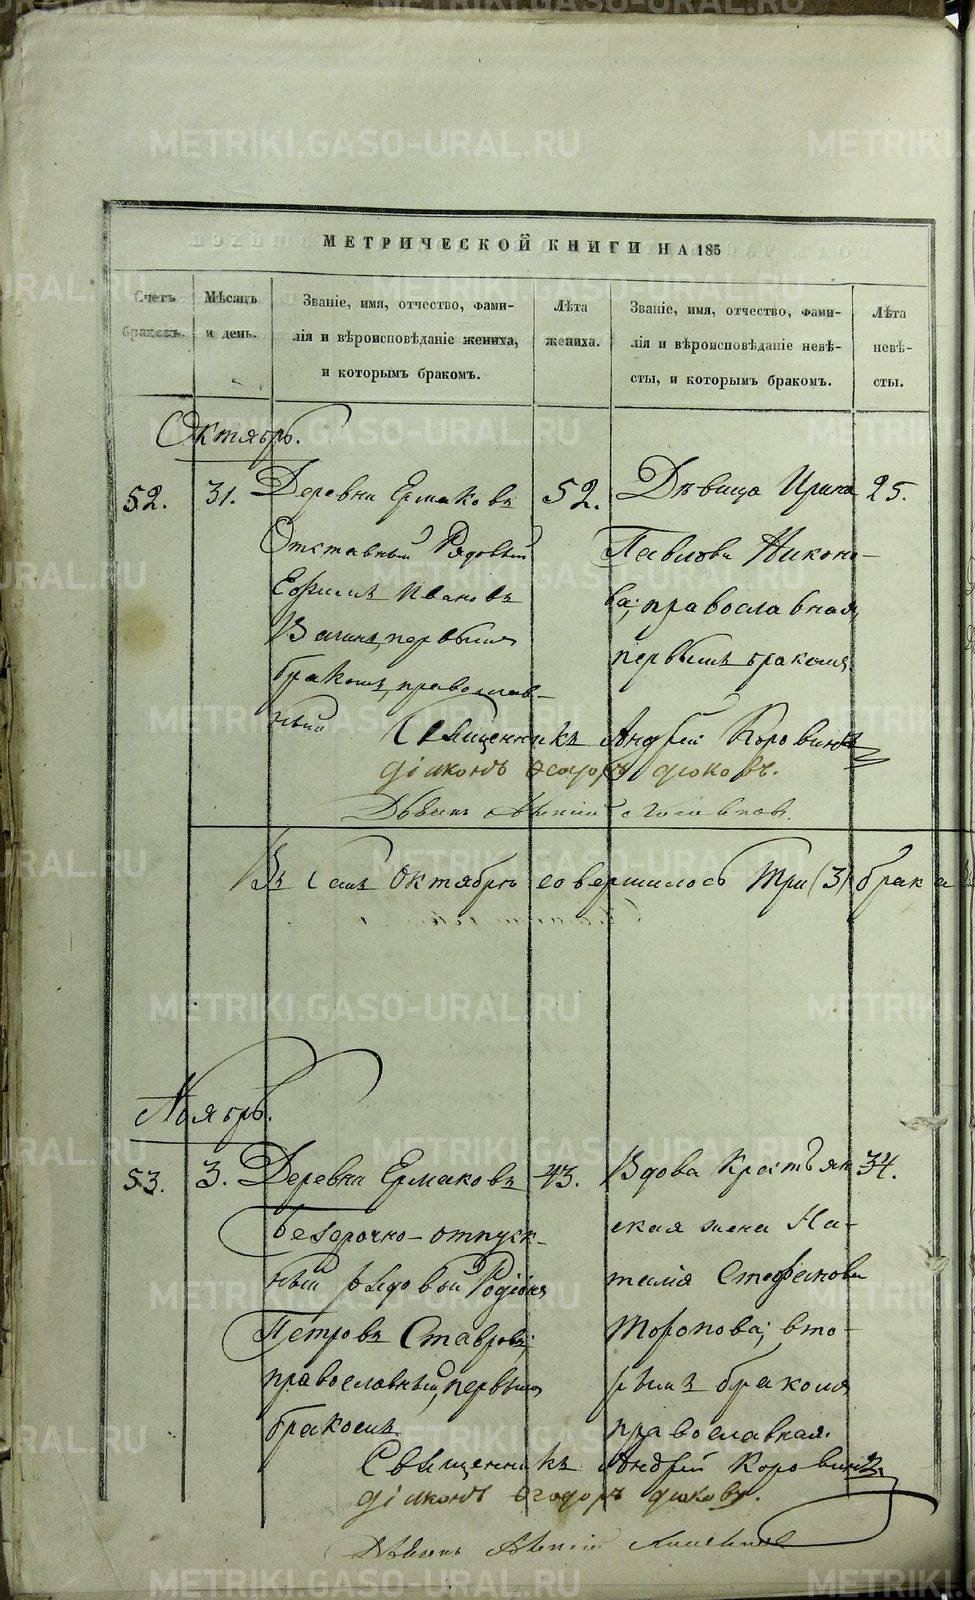 МЕТРИЧЕСКОЙ КНИГИ НА 185
Счетъ браковъ.
Мѣсяцъ и день.
Званіе, имя, отчество, фами-
лія и вѣроисповѣданіе жениха,
и которымъ бракомъ.
Лѣта
жениха.
Званіе, имя, отчество, фами-
лія и вѣроисповѣданіе невѣ-
сты, и которымъ бракомъ.
Лѣта
невѣ-
сты.
Октябрь.
52. 31. Деревни Ермаковъ 52. Дѣвица Ирина 25.
Отставный Рядовый
Ефимъ Ивановъ
первымъ
бракомъ, православ-
ный
Павлова Никоно-
ва; православная,
первымъ бракомъ
Священникъ Андрей Коровинъ
діаконъ Ѳеодоръ
Въ семъ Октябрѣ совершилось три (3) брака
Ноябрь.
53. 3. Деревни Ермаковъ 43. Вдова Крестьян 34.
безсрочно-отпуск-
ный рядовой Родіонъ
Петровъ Ставровъ;
православный, первымъ
бракомъ
ская жена На-
талія Стефанова
Торопова; вто-
рымъ бракомъ
православная.
Священникъ Андрей Коровинъ
діаконъ Ѳеодоръ
METRIKI.GASO-URAL.RU